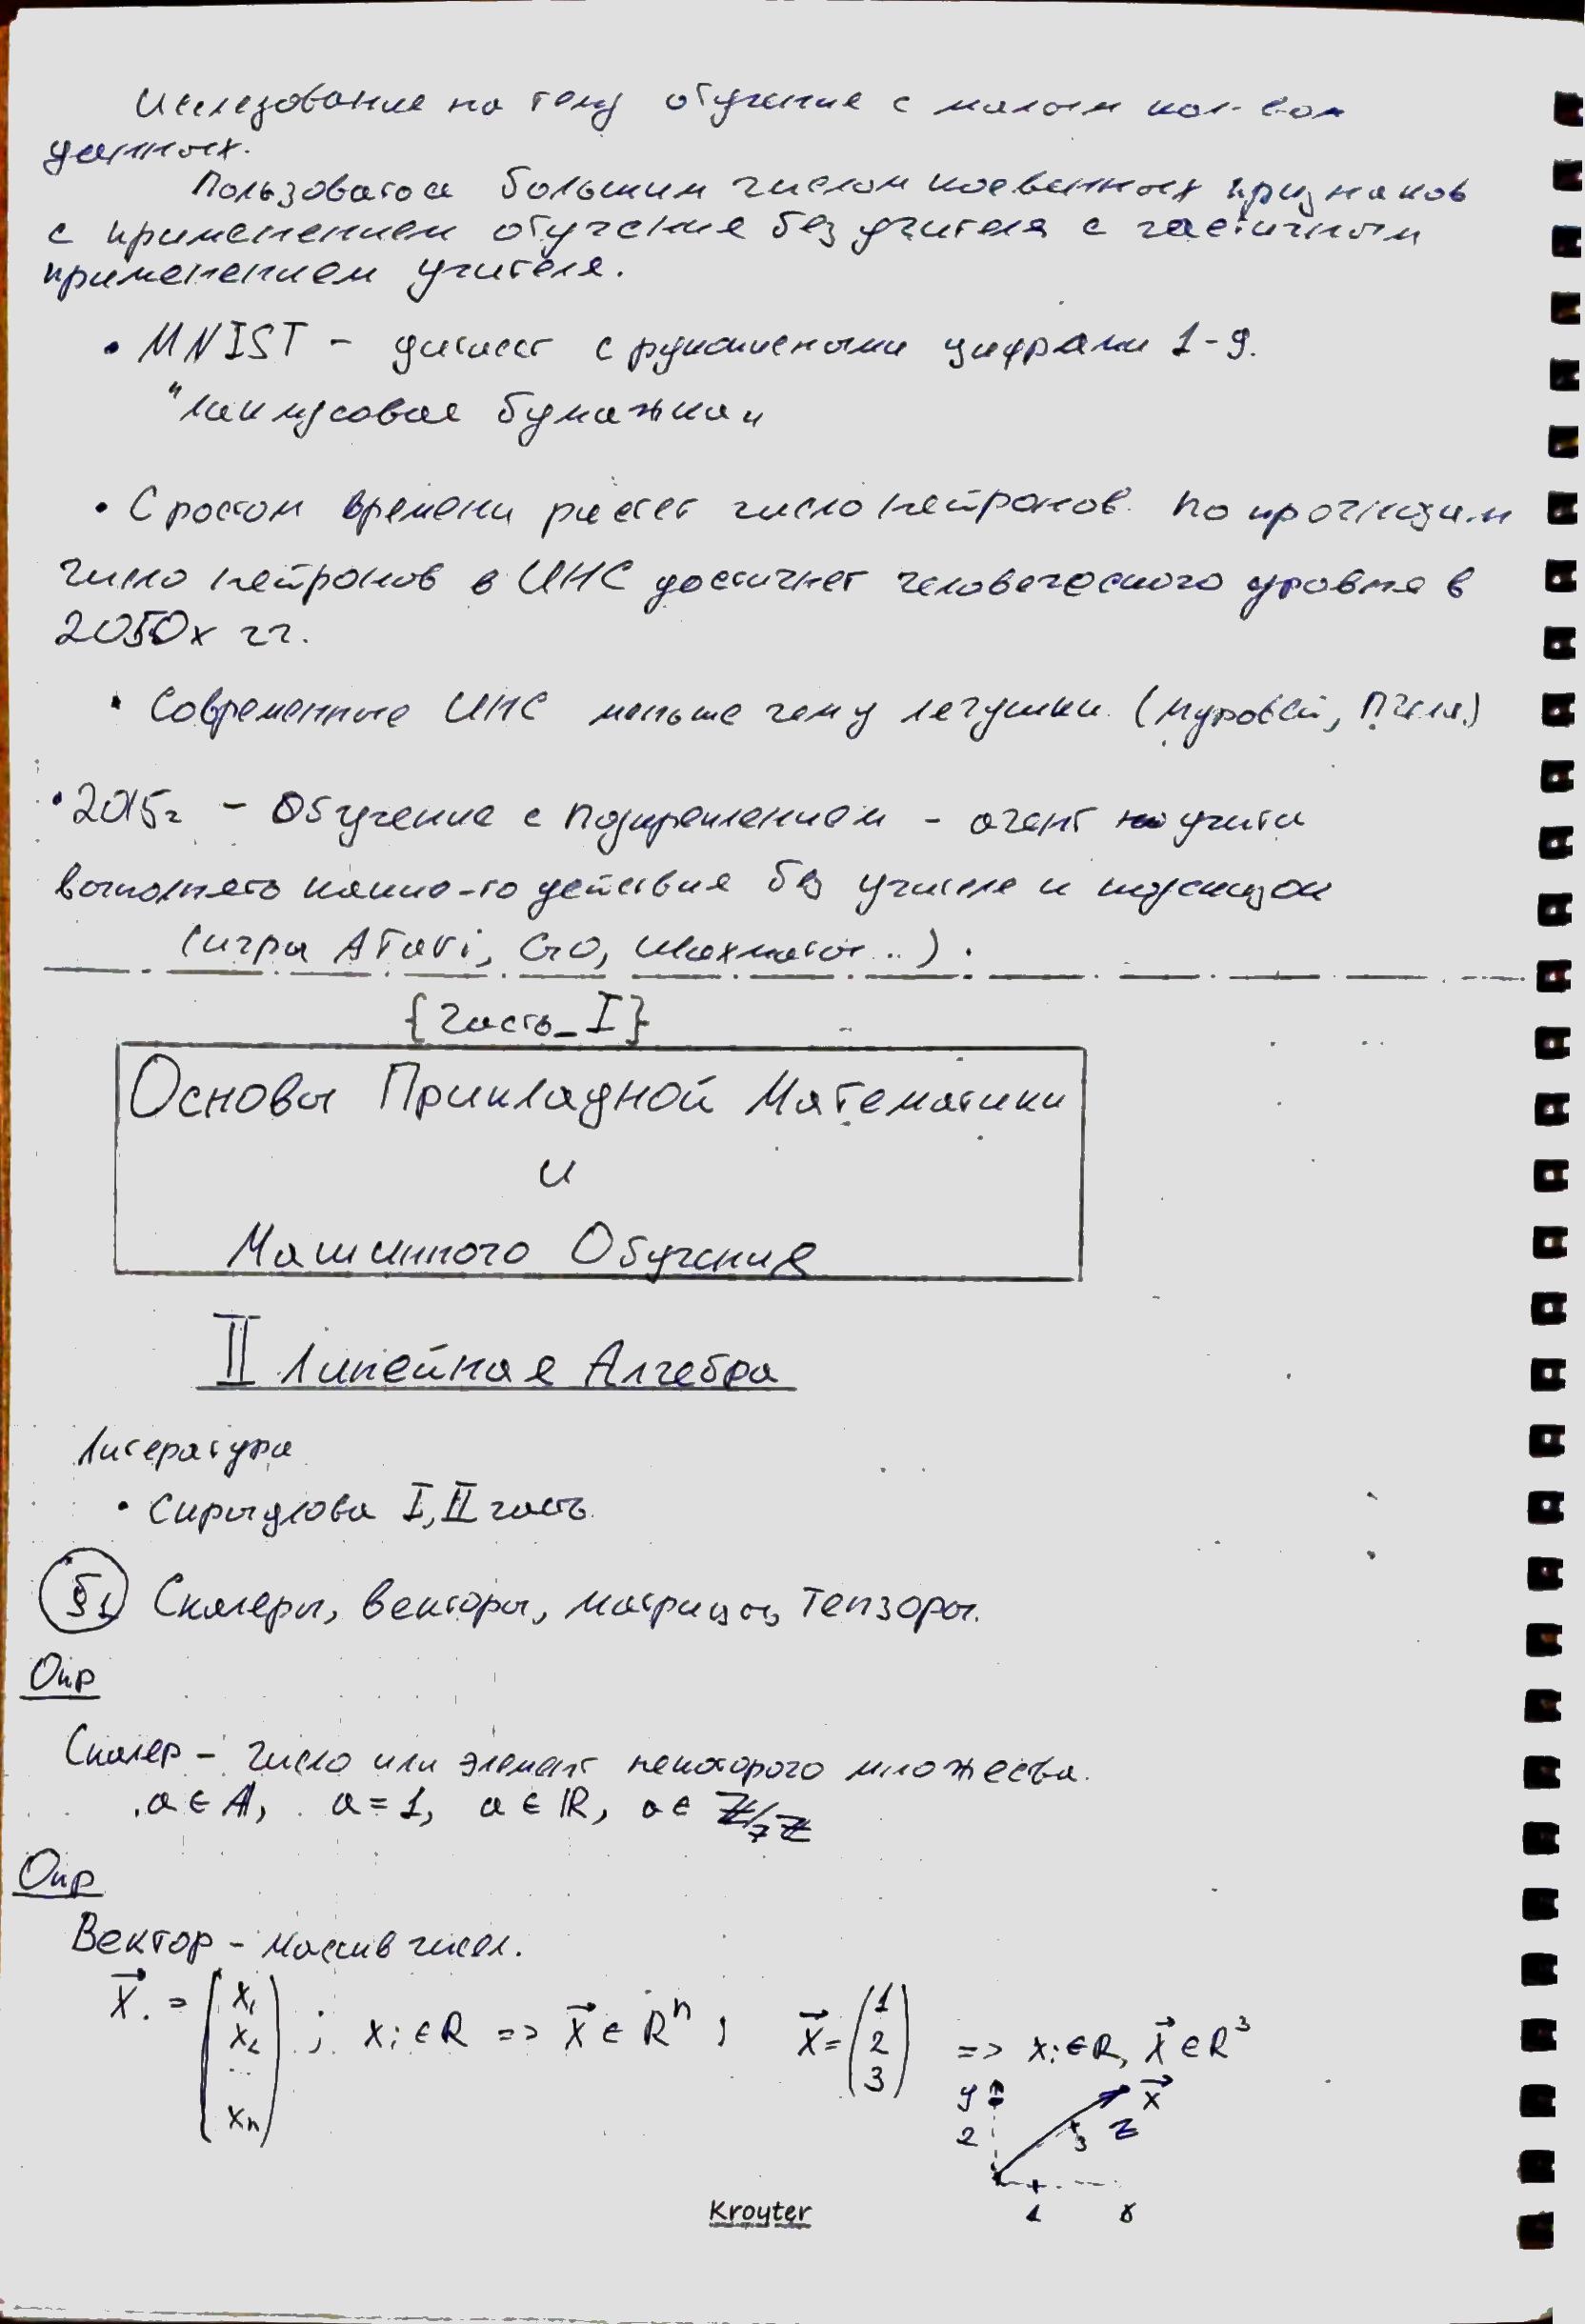 Исследование на тему обучение с малым кол-вом
данных.
Пользоваться большим числом косвенных признаков
с применением обучение без учителя с частичным
применением учителя.
• MNIST - датасет с рукописными цифрами 1-9.
"Лакмусовая бумажка"
• С ростом времени растет число нейронов. По прогнозам
число нейронов в ИНС достигнет человеческого уровня в
2050х гг.
• Современные ИНС меньше чем у лягушки. (Муровей, Пчела.)
• 2015г - Обучение с подкреплением - агент научится
выполнять какие-то действия без учителя и подсказок
(игра ATari, GO, Шахматы...).
{Часть_I}
Основы Прикладной Математики
и
Машинного Обучения
II Линейная Алгебра
Литература
• Скрыдлова I, II часть.
§1 Скаляры, векторы, матрицы, Тензоры.
Опр
Скаляр - число или элемент некоторого множества.
a ∈ A, a = 1, a ∈ ℝ, a ∈ ℤ/7ℤ
Опр
Вектор - массив чисел.
x⃗ = (x₁ x₂ ... xₙ) ; xᵢ ∈ R => x⃗ ∈ Rⁿ ; x⃗ = (1 2 3) => xᵢ ∈ R, x⃗ ∈ R³
y x⃗
2 3 z
1 x
Kroyter